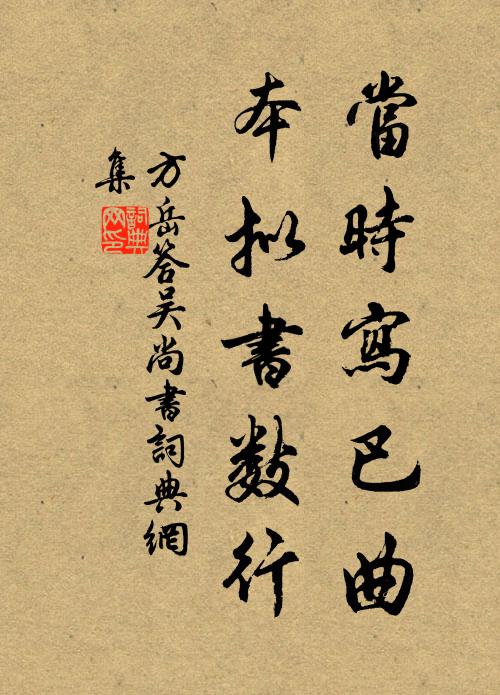 當時寫巴曲
本拟書數行
方岳答吴尚書詞典網
集
詞典網印